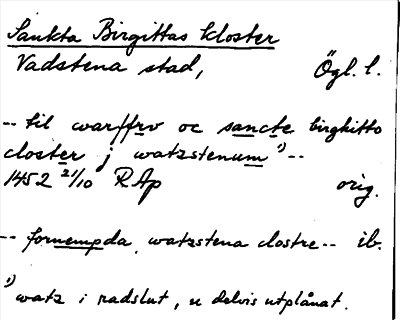 Sankta Birgittas kloster
Vadstena stad, Ögl. l.
-- til warffrv oc sancte birghitto
closter j watzstenum ¹⁾--
1452 21/10 RAp orig.
-- fornempda watzstena clostre -- ib.
¹⁾ watz i radslut, u delvis utplånat.